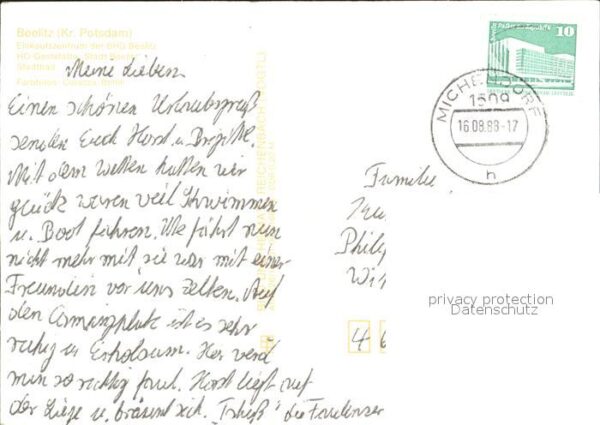 Beelitz (Kr. Potsdam)
Einkaufszentrum der BHG Beelitz
HO-Gaststätte "Stadt Beelitz"
Stadtbad
Meine Lieben
Einen schönen Urlaubsgruß
senden Euch Horst u. Brigitte.
Mit dem Wetter hatten wir
glück waren veil Schwimmen
u. Boot fahren. Ute fährt nun
nicht mehr mit sie war mit einer
Freundin vor uns zelten. Auf
den Campingplatz ist es sehr
ruhig u. Erholsam. Hier wird
man so richtig faul. Horst liegt auf
der Liege u. bräunt sich. Tschüß die Faulenzer
10
MICHENDORF
1509
16.08.88-17
h
Familie
Phili
Wit
4 6
privacy protection
Datenschutz